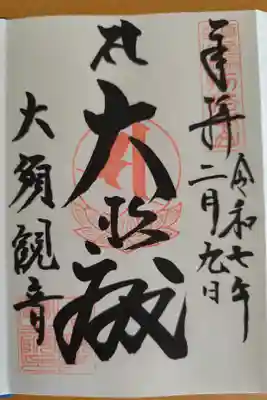 奉拝
令和七年
二月九日
大悲殿
大須観音